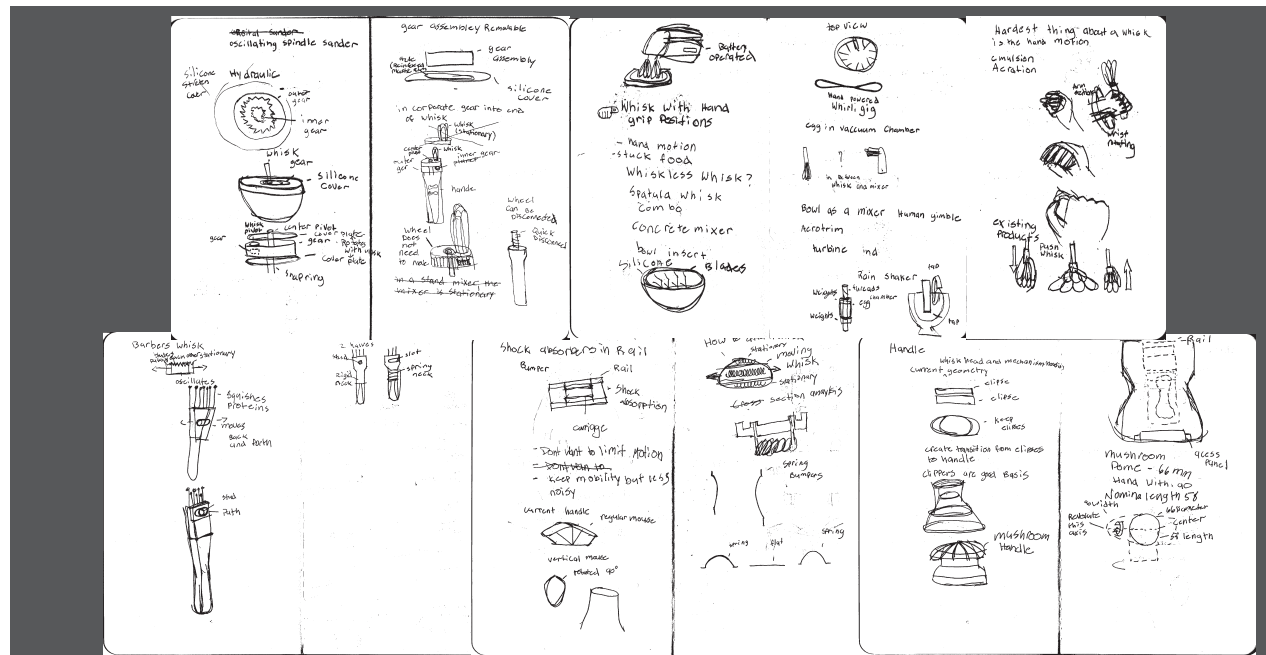 oscillating spindle sander
Hydraulic
Silicone
outer
gear
inner
gear
whisk
gear
Silicone
Cover
whisk
pivot
center Pivot
cover plate
gear
gear - Rotates
with whisk
Snapring
gear assembley Removable
gear
assembly
silicone
cover
in corporate gear into end
of whisk
whisk
(stationary)
center
whisk
outer
ger
inner gear
hande
Wheel
can be
Disconnected
Wheel
Does
not
need
Quick
Disconnect
in a stand mixer, the
mixer is stationary
Battery
operated
Whisk with Hand
grip Positions
- hand motion
- stuck food
Whiskless Whisk?
Spatula whisk
Combo
Concrete mixer
bowl insert
Silicone
Blades
top view
Hand powered
Whirligig
egg in vaccuum chamber
?
in between
whisk and mixer
Bowl as a mixer Human gimble
Aerotrim
turbine ind
Rain shaker
Weights
threads
egg
chamber
Weights
tap
tap
Hardest thing about a whisk
is the hand motion
emulsion
Aeration
wrist
existing
products
Push
whisk
Barbers whisk
stationary
oscillates
squishes
proteins
moves
Back
and forth
stud
Path
2 halves
stud
rigid
neck
slot
spring
neck
Shock absorbers in Rail
Bumper
Rail
Shock
absorption
carriage
- Dont want to limit motion
- Dont want to
- keep mobility but less
noisy
current handle
regular mouse
vertical mouse
rotated 90°
stationary
moving
whisk
stationary
Cross section
spring
Bumpers
spring
flat
spring
Handle
whisk head and mechanism
current geometry
elipse
elipse
keep
elipses
create transition from elipses
to handle
clippers are good Basis
mushroom
Handle
Rail
acess
Panel
mushroom
Dome - 66mm
Hand With. 90
Nominal length 58
width
Revolute
this
axis
66 Diameter
center
58 length